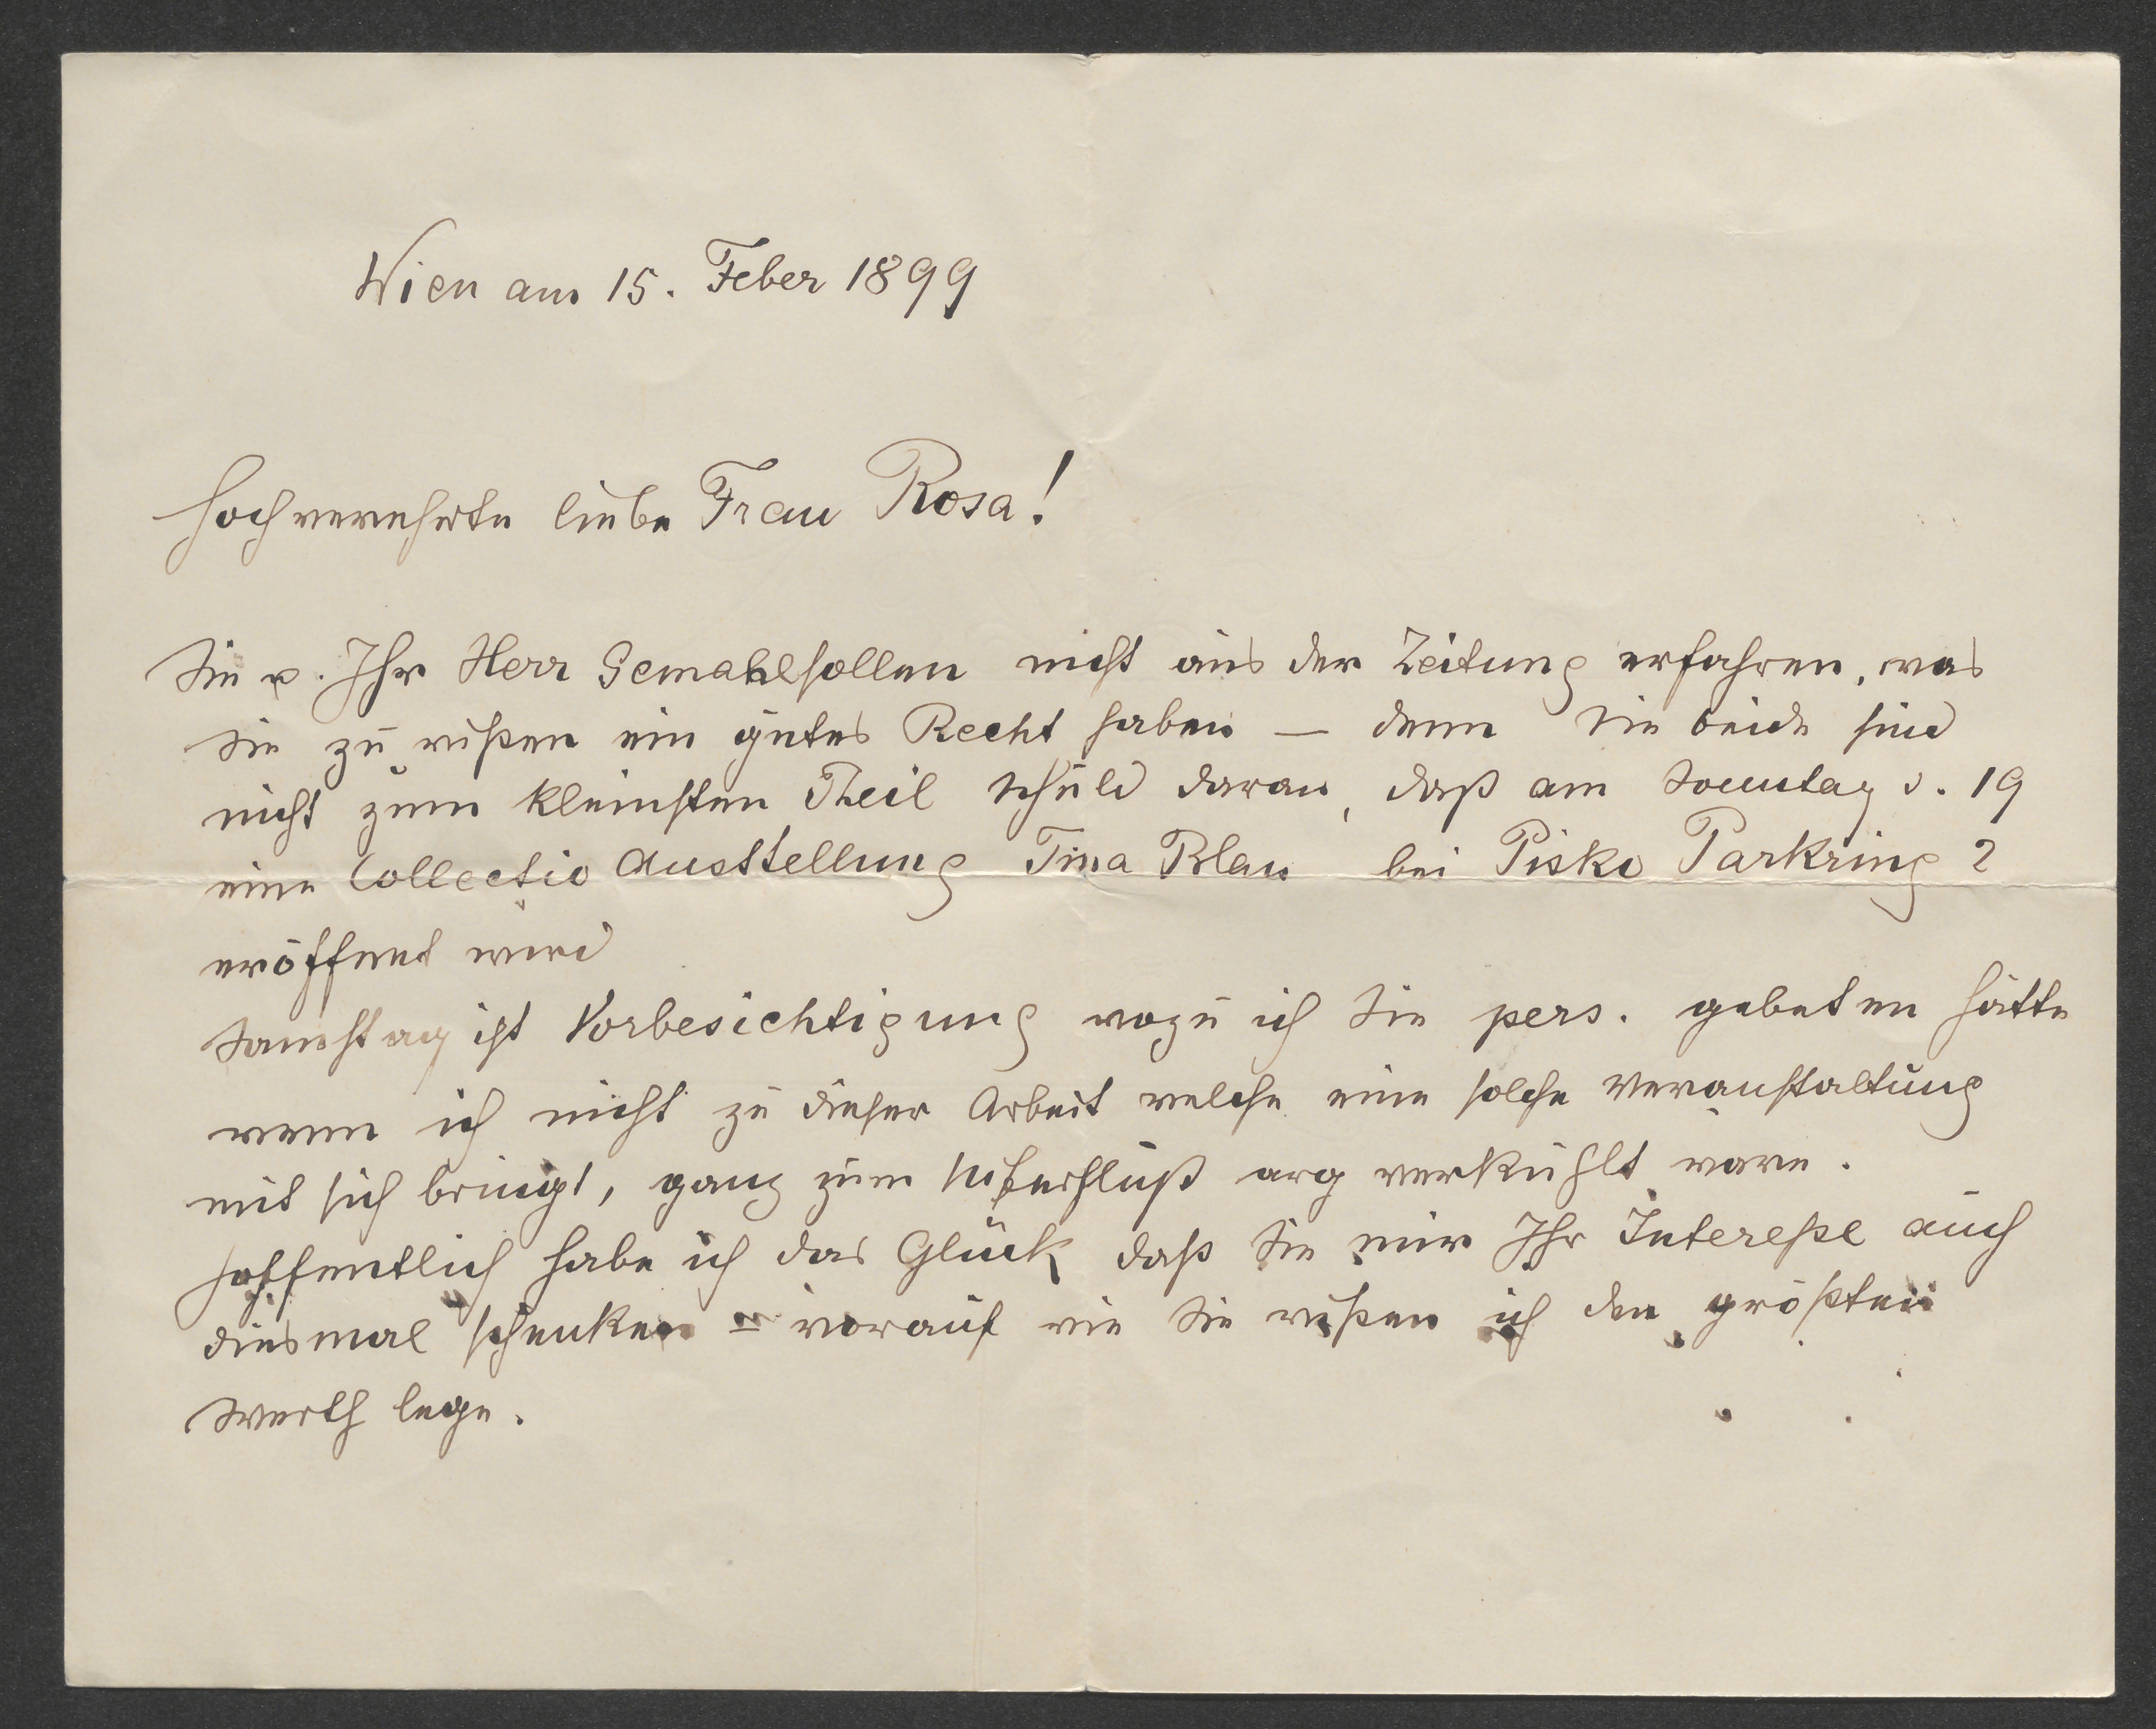 Wien am 15. Feber 1899
Hochverehrte liebe Frau Rosa!
Sie u. Ihr Herr Gemahl sollen nicht aus der Zeitung erfahren, was
Sie zu wißen ein gutes Recht haben — denn Sie beide sind
nicht zum kleinsten Theil Schuld daran, daß am Sonntag d. 19
eine Collectio Ausstellung Tina Blau bei Pisko Parkring 2
eröffnet wird
Samstag ist Vorbesichtigung wozu ich Sie pers. gebeten hätte
wenn ich nicht zu dieser Arbeit welche eine solche Veranstaltung
mit sich bringt, ganz zum Uiberfluß arg verkühlt wäre.
Hoffentlich habe ich das Glück daß Sie mir Ihr Intereße auch
diesmal schenken – worauf wie Sie wißen ich den größten
Werth lege.